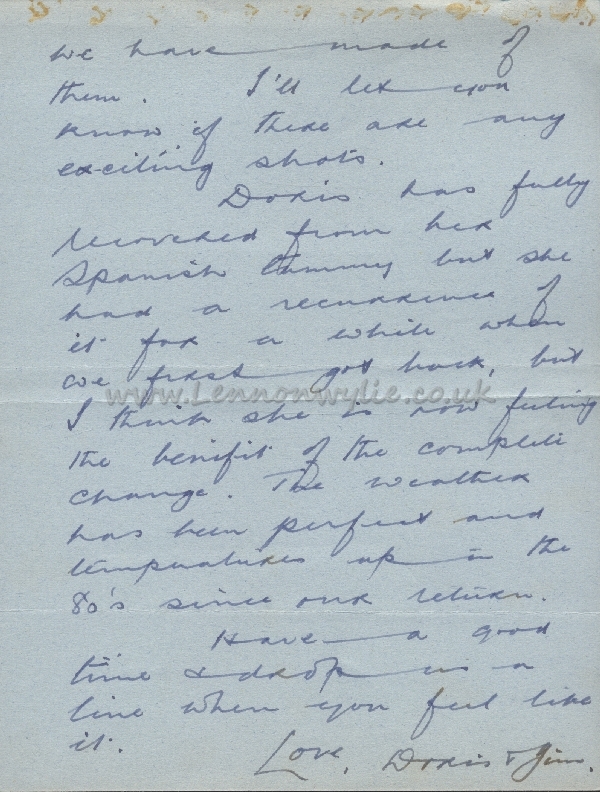 we have made of
them. I'll let you
know if there are any
exciting shots.
Doris has fully
recovered from her
Spanish tummy but she
had a recurrence of
it for a while when
we first got back, but
www.Lennonwylie.co.uk
I think she is now feeling
the benifit of the complete
change. The weather
has been perfect and
temperatures up in the
80's since our return.
Have a good
time & drop us a
line when you feel like
it.
Love, Doris & Jim.